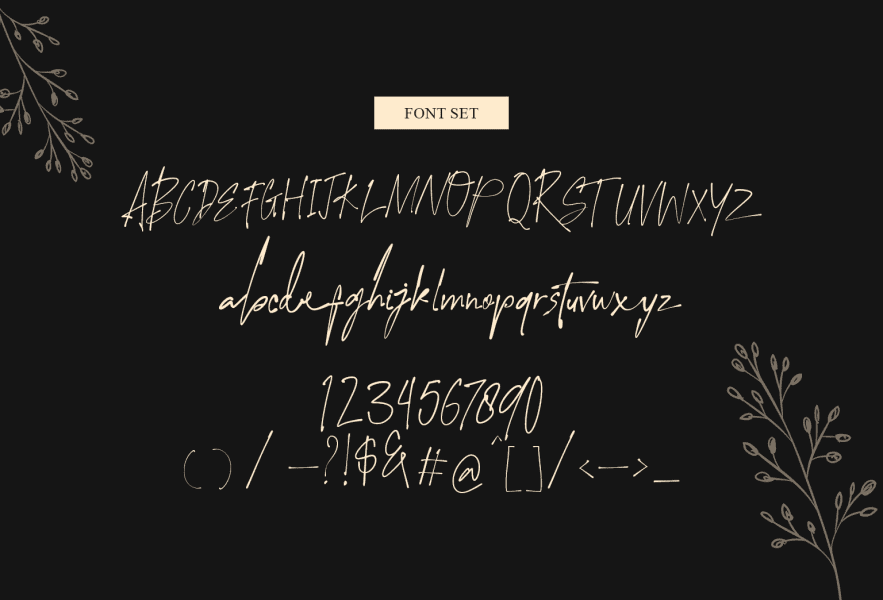 FONT SET
ABCDEFGHIJKLMNOPQRSTUVWXYZ
abcdefghijklmnopqrstuvwxyz
1234567890
() / —?!$&#@^[]/<—>_